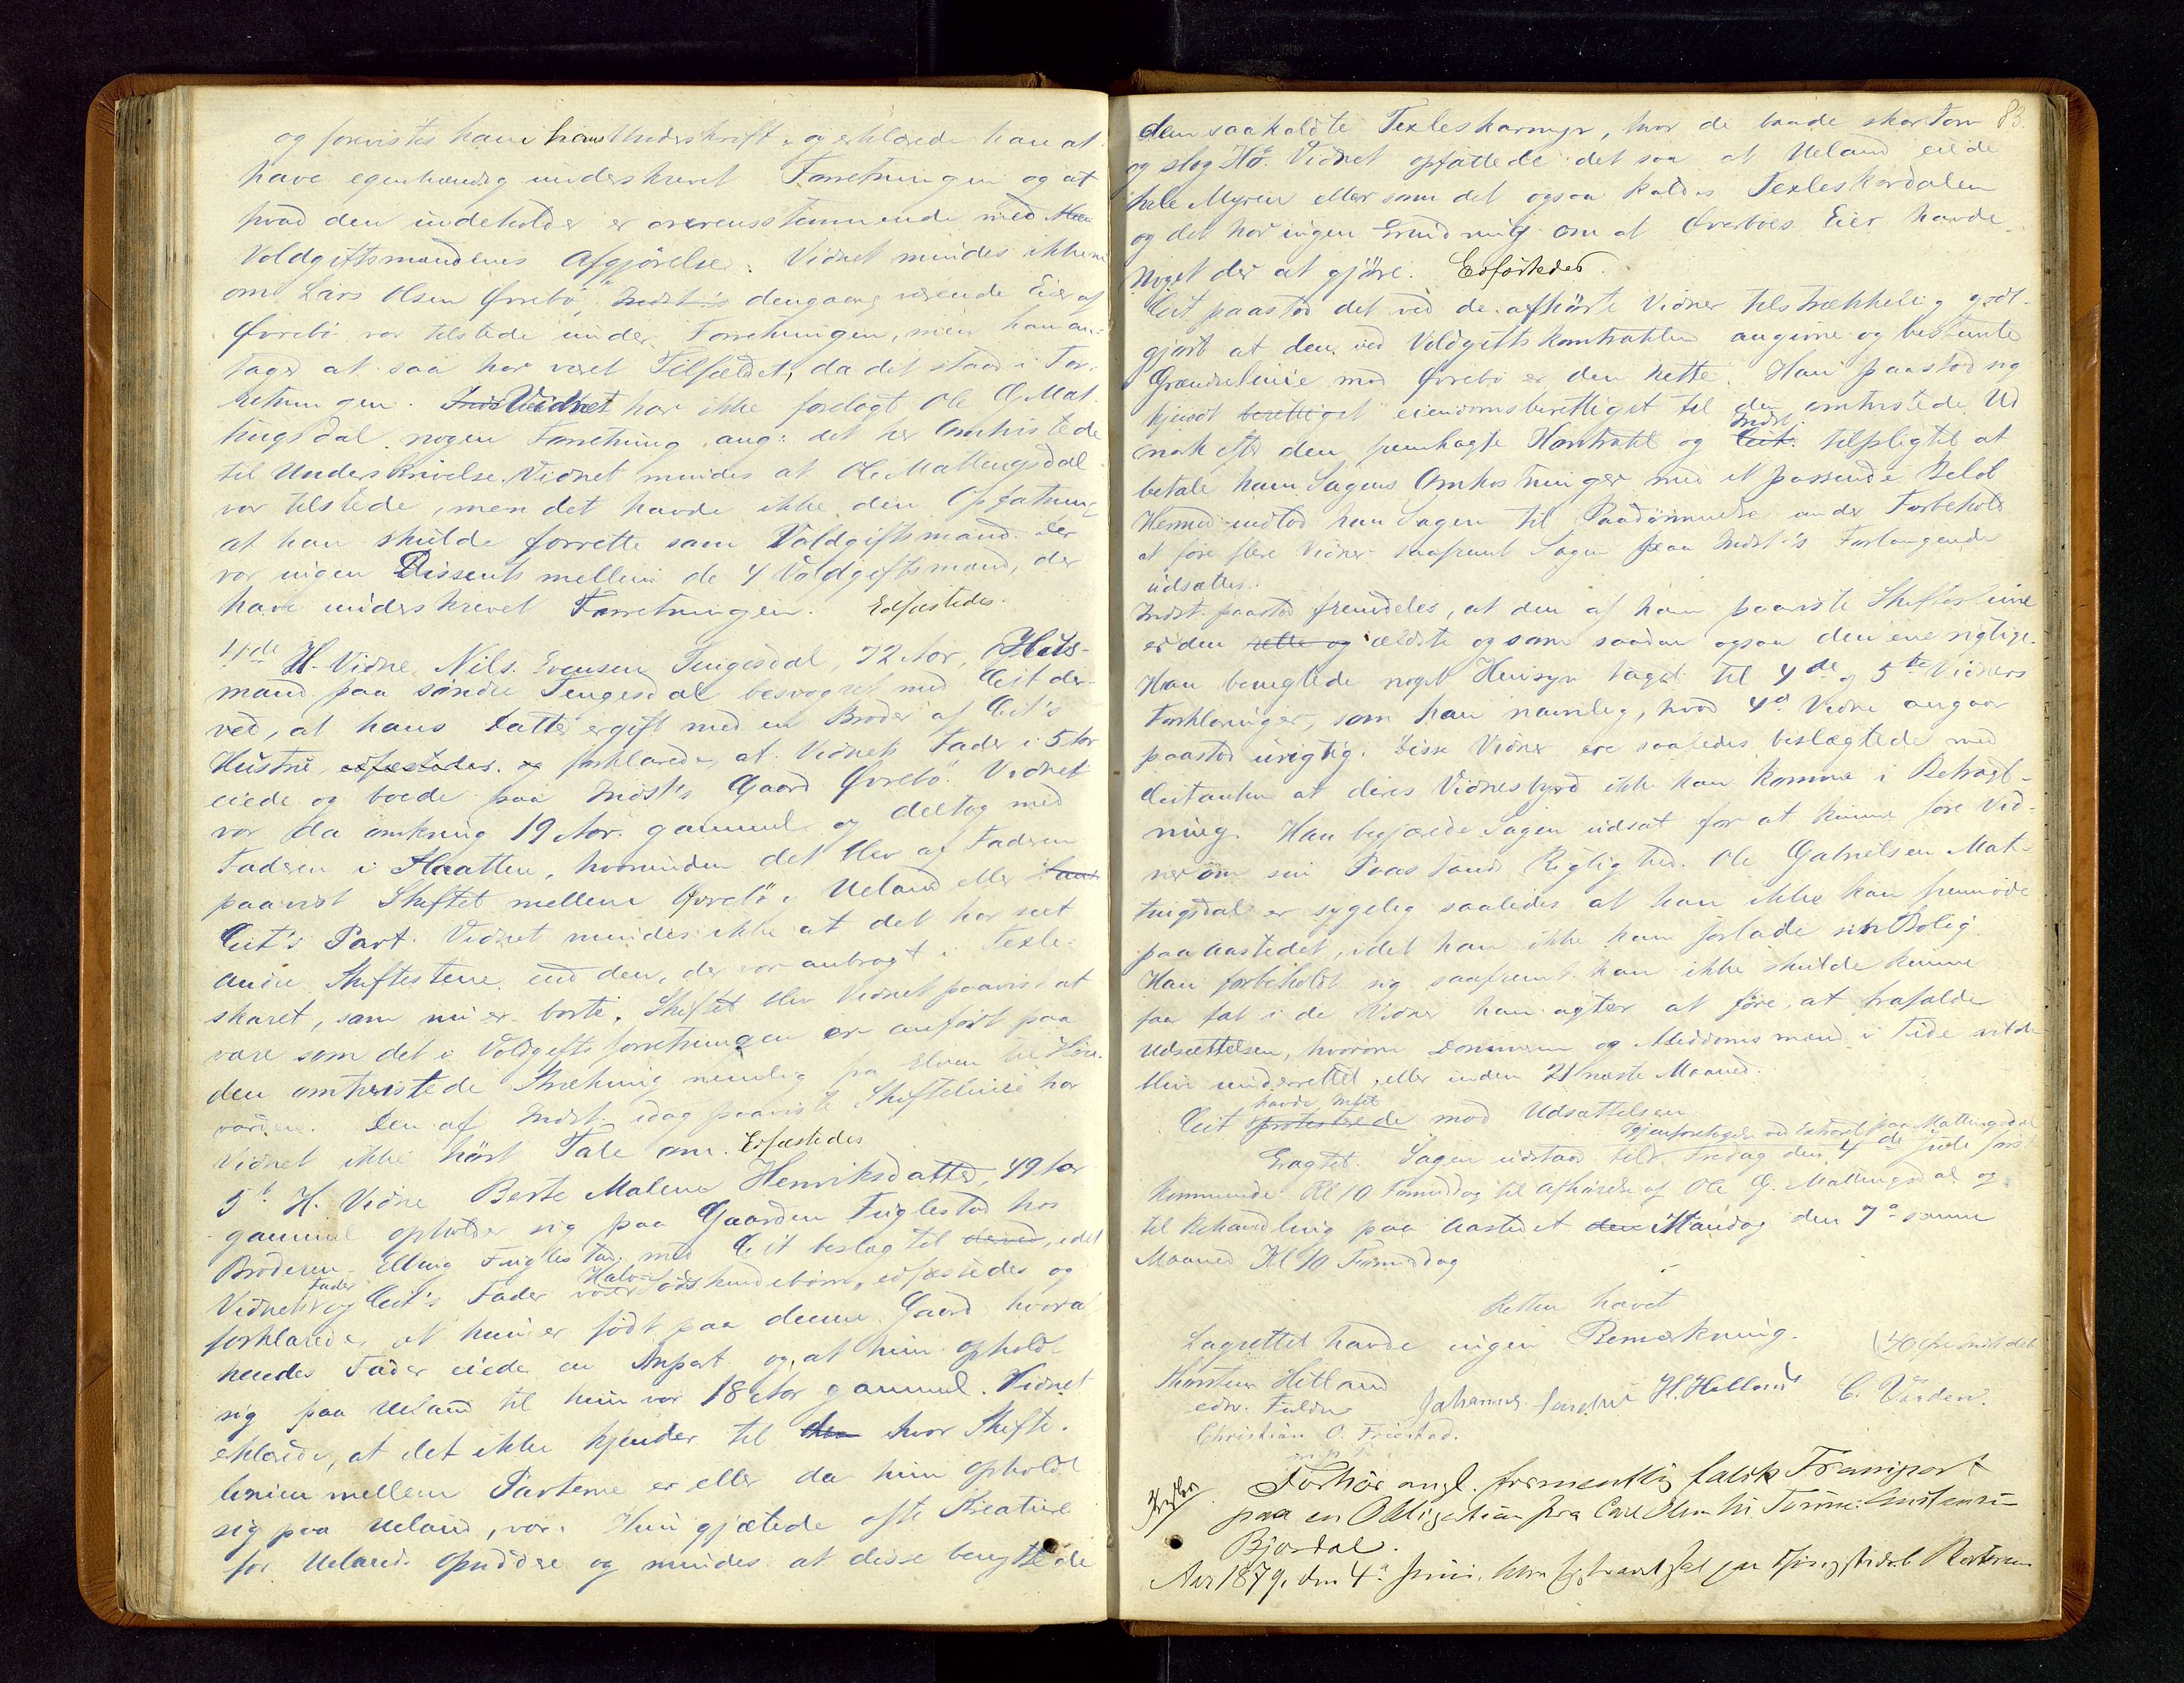 og forevistes ham hans Underskrift, og erklærede han at
have egenhændig underskrevet Forretningen og at
hvad den indeholder er overensstemmende med
Voldgiftsmændenes Afgjørelse. Vidnet mindes ikke
om Lars Olsen Øvrebø, Indst's dengang værende Eier af
Øvrebø var tilstede under Forretningen, men han an-
tager at saa har været Tilfældet, da det staar i For-
retningen. Vidnet har ikke forelagt Ole G. Mat-
tingsdal nogen Forretning ang: det her Omtvistede
til Underskrivelse. Vidnet mindes at Ole Mattingsdal
var tilstede, men det havde ikke den Opfatning
at han skulde forrette som Voldgiftsmand. Der
var ingen Dissents mellem de 4 Voldgiftsmænd, der
have underskrevet Forretningen. Edfæstedes.
4de H. Vidne Nils Evensen Tengesdal, 72 Aar, Huus-
mand paa søndre Tengesdal besvogret med Cit der-
ved, at hans Datter er gift med en Broder af Cit's
Hustru, edfæstedes. og forklarede, at Vidnets Fader i 5 Aar
eiede og boede paa Indst's Gaard Øvrebø. Vidnet
var da omkring 19 Aar gammel og deeltog med
Faderen i Slaatten, hvorunder det blev af Faderen
paavist Skiftet mellem Øvrebø og Ueland eller
Cit's Part. Vidnet mindes ikke at det har seet
andre Skiftestene end den, der var anbragt i Texle-
skaret, som nu er borte. Skiftet blev Vidnet paavist at
være som det i Voldgiftsforretningen er anført paa
den omtvistede Strækning nemlig fra Elven til
varden. Den af Indst. idag paaviste Skiftelinie har
Vidnet ikke hørt Tale om. Edfæstedes
5t H. Vidne Berte Malene Henriksdatter, 49 Aar
gammel opholder sig paa Gaarden Fuglestad hos
Broderen Elling Fuglestad, med Cit beslægtet derved, idet
Vidnets Fader og Cit's Fader vare Halvsødskendebørn, edfæstedes og
forklarede, at hun er født paa denne Gaard hvoraf
hendes Fader eiede en Anpart og at hun opholdt
sig paa Ueland til hun var 18 Aar gammel. Vidnet
erklærede, at det ikke kjender til den hvor Skifte-
linien mellem Parterne er eller da hun opholdt
sig paa Ueland, var. Hun gjætede ofte Kreature
for Uelands Opsiddere og mindes at disse benyttede
83
den saakaldte Texleskarmyr, hvor de baade skar Torv
og slog Hø. Vidnet opfattede det saa at Ueland eiede
hele Myren eller som det ogsaa kaldes Texleskardalen
og det har ingen Erindring om at Øvrebøes Eier havde
noget der at gjøre. Edfæstedes.
Cit paastod det ved de afhørte Vidner tilstrækkelig godt-
gjort at den ved Voldgiftskontrakten angivne og bestemte
Grændselinie mod Øvrebø er den rette. Han paastod sig
kjendt berettiget eiendomsberettiget til den omtvistede Ud
mark efter den fremlagte Kontrakt og Cit. Indst. tilpligtet at
betale ham Sagens Omkostninger med et passende Beløb
Hermed indlod han Sagen til Paadømmelse under Forbehold
at føre flere Vidner saafremt Sagen paa Indst's Forlangende
udsættes.
Indst. paastod fremdeles, at den af ham paaviste Skifteslinie
er den rette og ældste og som saadan ogsaa den ene rigtige.
Han benegtede noget Hensyn taget til 4de og 5te Vidners
Forklaringer, som han navnlig, hvad 4de Vidne angaar
paastod urigtig. Disse Vidner ere saaledes beslægtede med
Citanten at deres Vidnesbyrd ikke kan komme i Betragt-
ning. Han begjærede Sagen udsat for at kunne føre Vid-
ner om sin Paastands Rigtighed. Ole Gabrielsen Mat-
tingsdal er sygelig saaledes at han ikke kan fremmøde
paa Aastedet, idet han ikke kan forlade sin Bolig.
Han forbeholdt sig saafremt han ikke skulde kunne
faa fat i de Vidner han agter at føre, at frafalde
Udsættelsen, hvorom Dommeren og Meddomsmænd i Tide vilde
blive underrettet, eller inden 21 næste Maaned.
Cit protesterede havde Intet mod Udsættelsen
Eragtet. Sagen udstaar til Gjenforetagelse ved Extraret paa Mattingsdal Fredag den 4de Juli først-
kommende Kl 10 Formiddag til Afhørelse af Ole G. Mattingsdal og
til Behandling paa Aastedet den Mandag den 7de samme
Maaned Kl 10 Formiddag
Retten hævet
Lagrettet havde ingen Bemærkning.
Thorsten Hetland
Johannes H. Helland C. Vaaden.
Christian O. Friestad.
Forhør angl. formentlig falsk Transport
paa en Obligation fra Carl Olsen til
Bjordal.
Aar 1879, den 4de Juni, blev